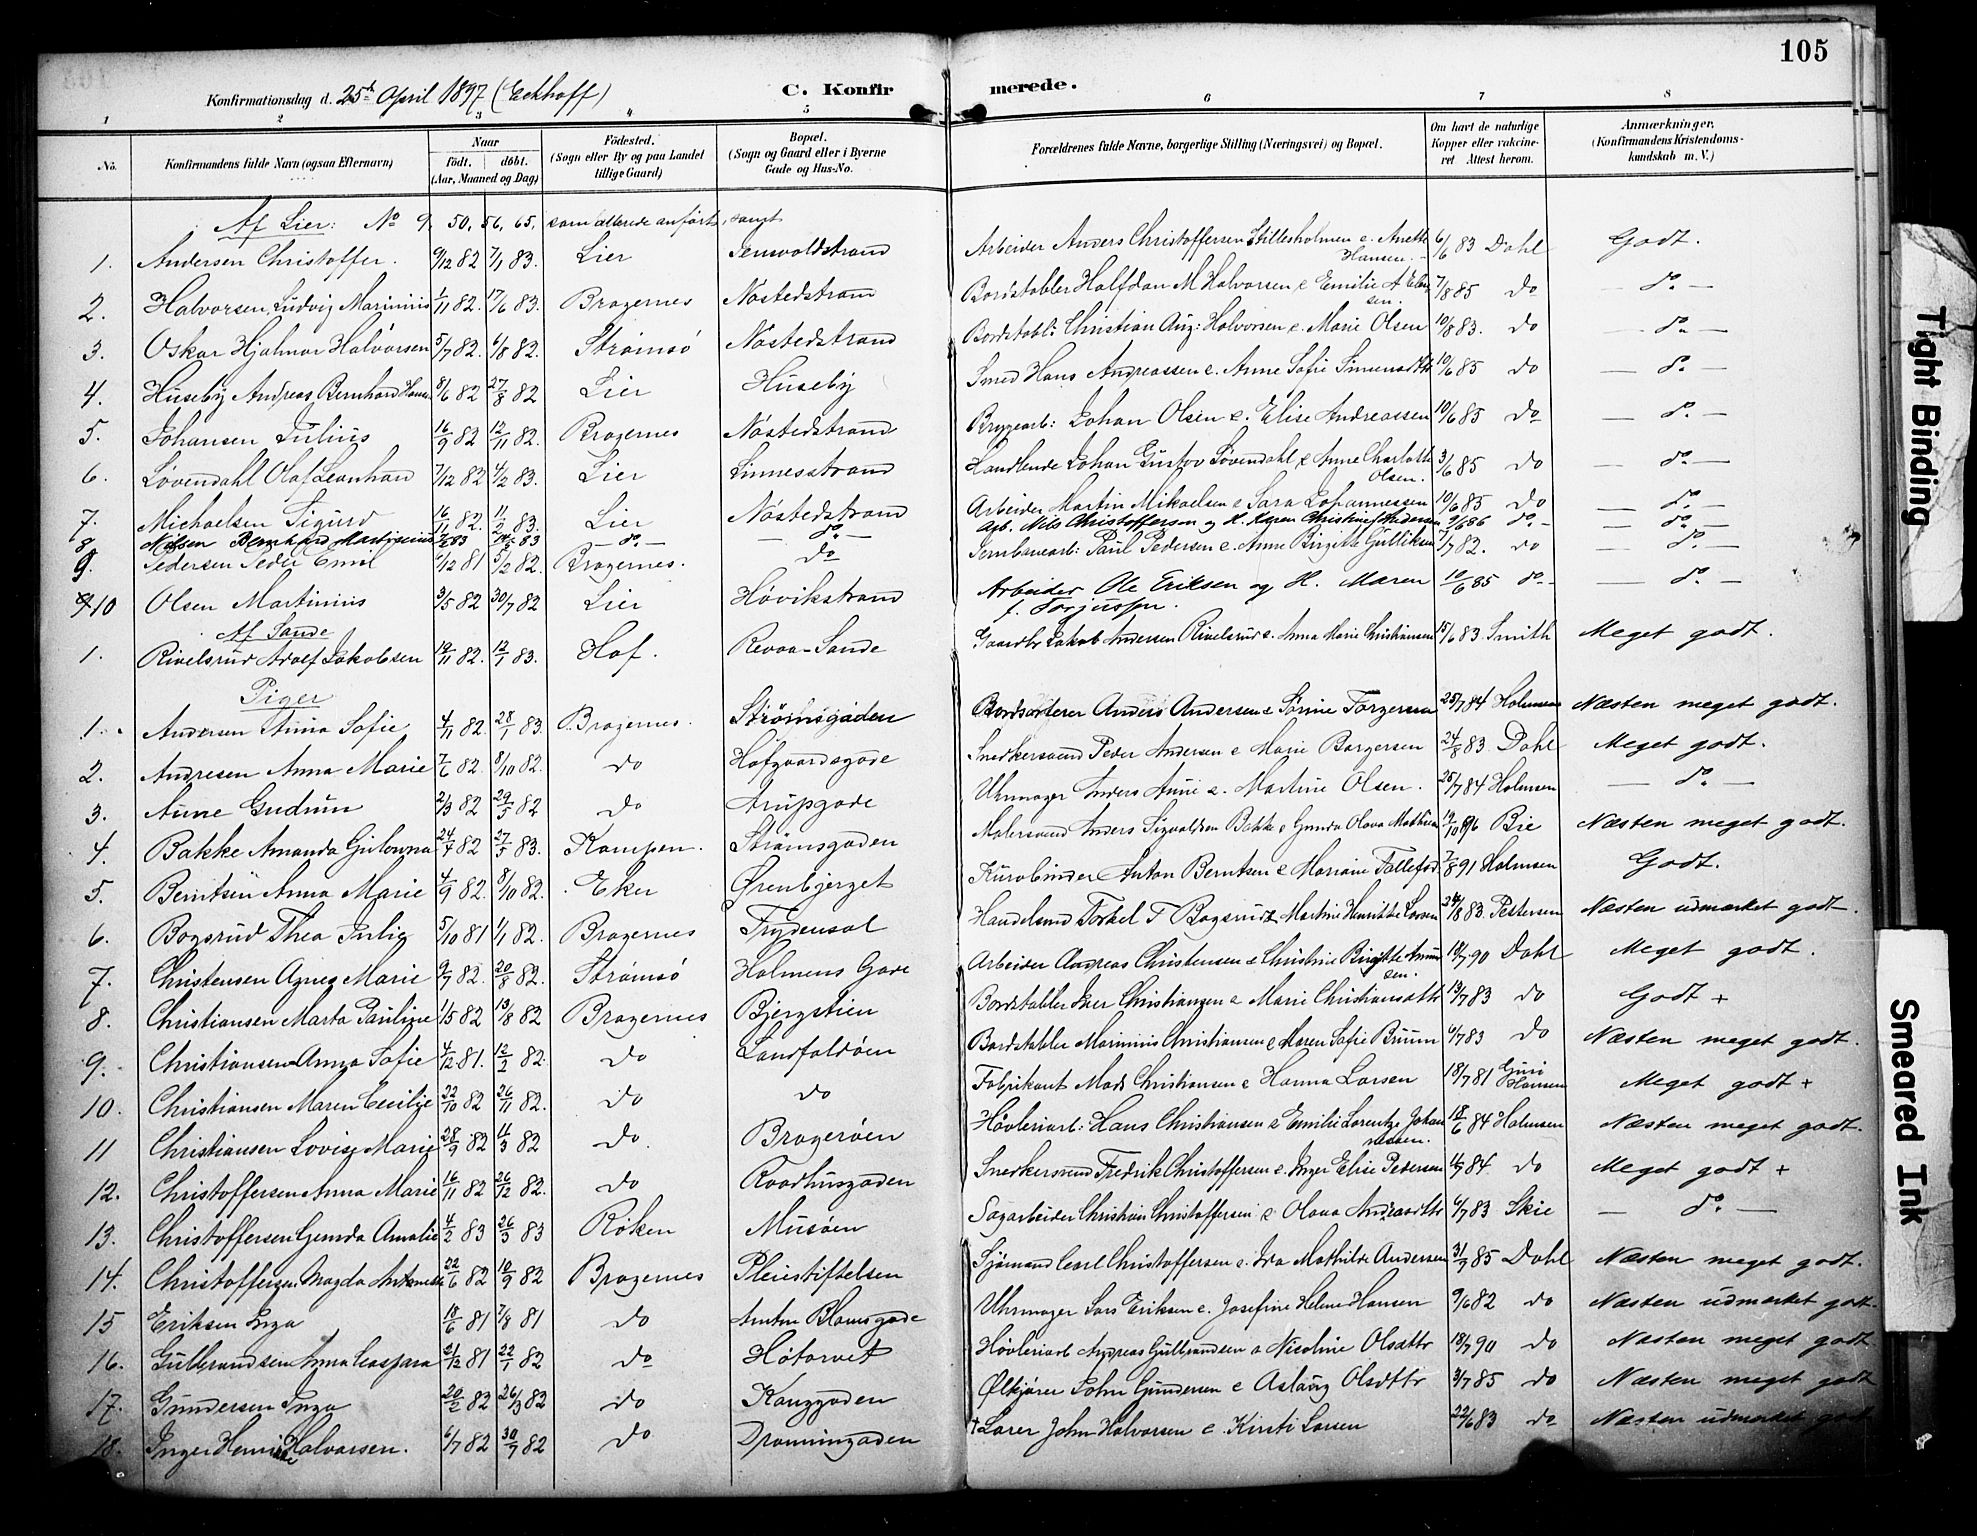 105
Konfirmationsdag d. 25de April 1897 (Eckhoff) C. Konfirmerede.
1 2 3 4 5 6 7 8
No. Konfirmandens fulde Navn (ogsaa Efternavn) Naar født. døbt. (Aar, Maaned og Dag) Fødested. (Sogn eller By og paa Landet tillige Gaard) Bopæl. (Sogn og Gaard eller i Byerne Gade og Hus-No. Forældrenes fulde Navne, borgerlige Stilling (Næringsvei) og Bopæl. Om havt de naturlige Kopper eller vakcineret. Attest herom. Anmærkninger. (Konfirmandens Kristendomskundskab m. V.)
Af Lier: No 9, 50, 56, 65, som allerede anført, samt
1. Andersen Christoffer. 9/12 82 7/1 83. Lier Arbeider Anders Christoffersen Stillesholmen e. Anette Hansen. 6/6 83 Dahl Godt.
2. Halvorsen, Ludvig Marinius 1/11 82. 17/6 83. Bragernes Nøstedstrand Bordstabler Halfdan M Halvorsen e Emilie 7/8 85 do — do —
3. Oskar Hjalmar Halvorsen 5/7 82. 6/8 82. Strømsø Nøstedstrand Bordstabl: Christian Aug: Halvorsen e. Marie Olsen 10/8 83. do — do —
4. Huseby Andreas Bernhard 8/6 82 27/8 82 Lier Huseby Smed Hans Andreassen e. Anne Sofie 10/6 85 do — do —
5. Johansen Julius 16/9 82 12/11 82. Bragernes Nøstedstrand Bryggearb: Johan Olsen e. Elise Andreassen 10/6 85 do — do —
6. Løvendahl Olaf Leonhard 7/12 82 4/2 83. Lier Linnesstrand Handlende Johan Gustav Løvendahl e Anne Charlotte Olsen. 3/6 85 do — do —
7. Michaelsen Sigurd 16/11 82. 11/2 83. Lier Nøstedstrand Arbeider Martin Mikaelsen e Sara Johannessen 10/6 85 do — do —
8. Nilsen Bernhard — do — — do — Arb. Nils Christofferson og H. Karen Christine 9/6 86 do — — do —
9. Pedersen Peder Emil 6/12 81 5/2 82. Bragernes. do Jernbanearb: Paul Pedersen e. Anne Birgitte Gulliksen 7/7 82. do — do —
10 Olsen Martinius 3/5 82 30/7 82 Lier Høvikstrand Arbeider Ole Eriksen og H. Maren f. 10/6 85 do — — do —
Af Sande
1. Rivelsrud Adolf Jakobsen 19/11 82. 12/1 83. Hof. Revaa-Sande Gaardbr Jakob Andersen Rivelsrud e. Anna Marie Christiansen 15/6 83. Smith Meget godt.
Piger
1. Andersen Anna Sofie 4/11 82. 28/1 83. Bragernes. Strømsgaden Bordsorterer Anders Andersen e Sørine Torgersen 25/7 84 Holmsen Næsten meget godt.
2. Andresen Anna Marie 7/6 82. 8/10 82. do Hofgaardsgade Snedkersvend Peder Andersen e Marie Borgersen 24/8 83. Dahl Meget godt.
3. Aune Gudrun 2/3 82 29/5 82 do Arupgade Uhrmager Anders Aune e. Martine Olsen. 25/7 84 Holmsen — do —
4. Bakke Amanda 24/4 82 27/5 83. Kampen. Strømsgaden Malersvend Anders Sigvaldsen Bakke e Gunda Olava 19/10 96 Bie Næsten meget godt.
5. Berntsen Anna Marie 4/9 82. 8/10 82. Eker Ørenbjerget Kurvbinder Anton Berntsen e Mariane 7/8 91 Holmsen Godt.
6. Bogsrud Thea Julie 5/10 81 1/1 82. Bragernes Frydensal Torkel T Bogsrud e Martine Henrikke Larsen 83. Pettersen Næsten udmærket godt.
7. Christensen Agnes Marie 9/7 82. 20/8 82. Strømsø Holmens Gade Arbeider Andreas Christensen e Christine Birgitte 90 Dahl Meget godt.
8. Christiansen Marta Pauline 1/5 82 13/8 82 Bragernes Bjergstien Bordstabler Iver Christiansen e Marie Christiansdttr 13/7 83 do Godt +
9. Christiansen Anna Sofie 4/12 81. 12/2 82. do Landfaldøen Bordstabler Marinius Christiansen e Maren Sofie Bruun 6/7 83 do Næsten meget godt.
10. Christiansen Maren Cecilie 22/10 82 26/11 82. do do Fabrikant Mads Christiansen e Hanna Larsen 18/7 81 Guri Hansen Meget godt +
11 Christiansen Lovise Marie 28/9 82 do. Bragerøen Høvleriarb: Hans Christiansen e Emilie Lorentze Johannessen. 18/6 84 Holmsen Næsten meget godt.
12. Christoffersen Anna Marie 16/11 82 26/12 82. do Raadhusgaden Snedkersvend Fredrik Christoffersen e. Inger Elise Pedersen 84 do Meget godt +
13. Christoffersen Gunda Amalie 4/2 83 26/3 83 Røken Musøen Sagarbeider Christian Christoffersen e Olava 6/7 83 Skie — do —
14. Christoffersen Magda 22/6 82 10/9 82 Bragernes Pleiestiftelsen Sjømand Carl Christoffersen e. Ida Mathilde Andersen 31/7 85 Dahl Næsten meget godt.
15 Eriksen Inga 18/6 81 7/8 81 do Anton Blomsgade Uhrmager Lars Eriksen e. Josefine Helene Hansen 9/6 82 do Næsten udmærket godt.
16. Gulbrandsen Anna Caspara 21/12 81 22/1 82 do Høtorvet Høvleriarb Andreas Gulbrandsen e Nicoline Olsdttr 18/7 90 do Næsten meget godt
17. Gundersen Inga 20/2 82 26/3 82 do Kanggaden Ølkjører John Gundersen e Aslaug Olsdttr 3/7 85 do Næsten meget godt
18. Inger Henrikke Halvorsen. 6/7 82 30/7 82 do Dronningaden † Larer John Halvorsen e. Kirsti Larsen 22/6 83 do Næsten udmærket godt
Tight Binding
Smeared Ink